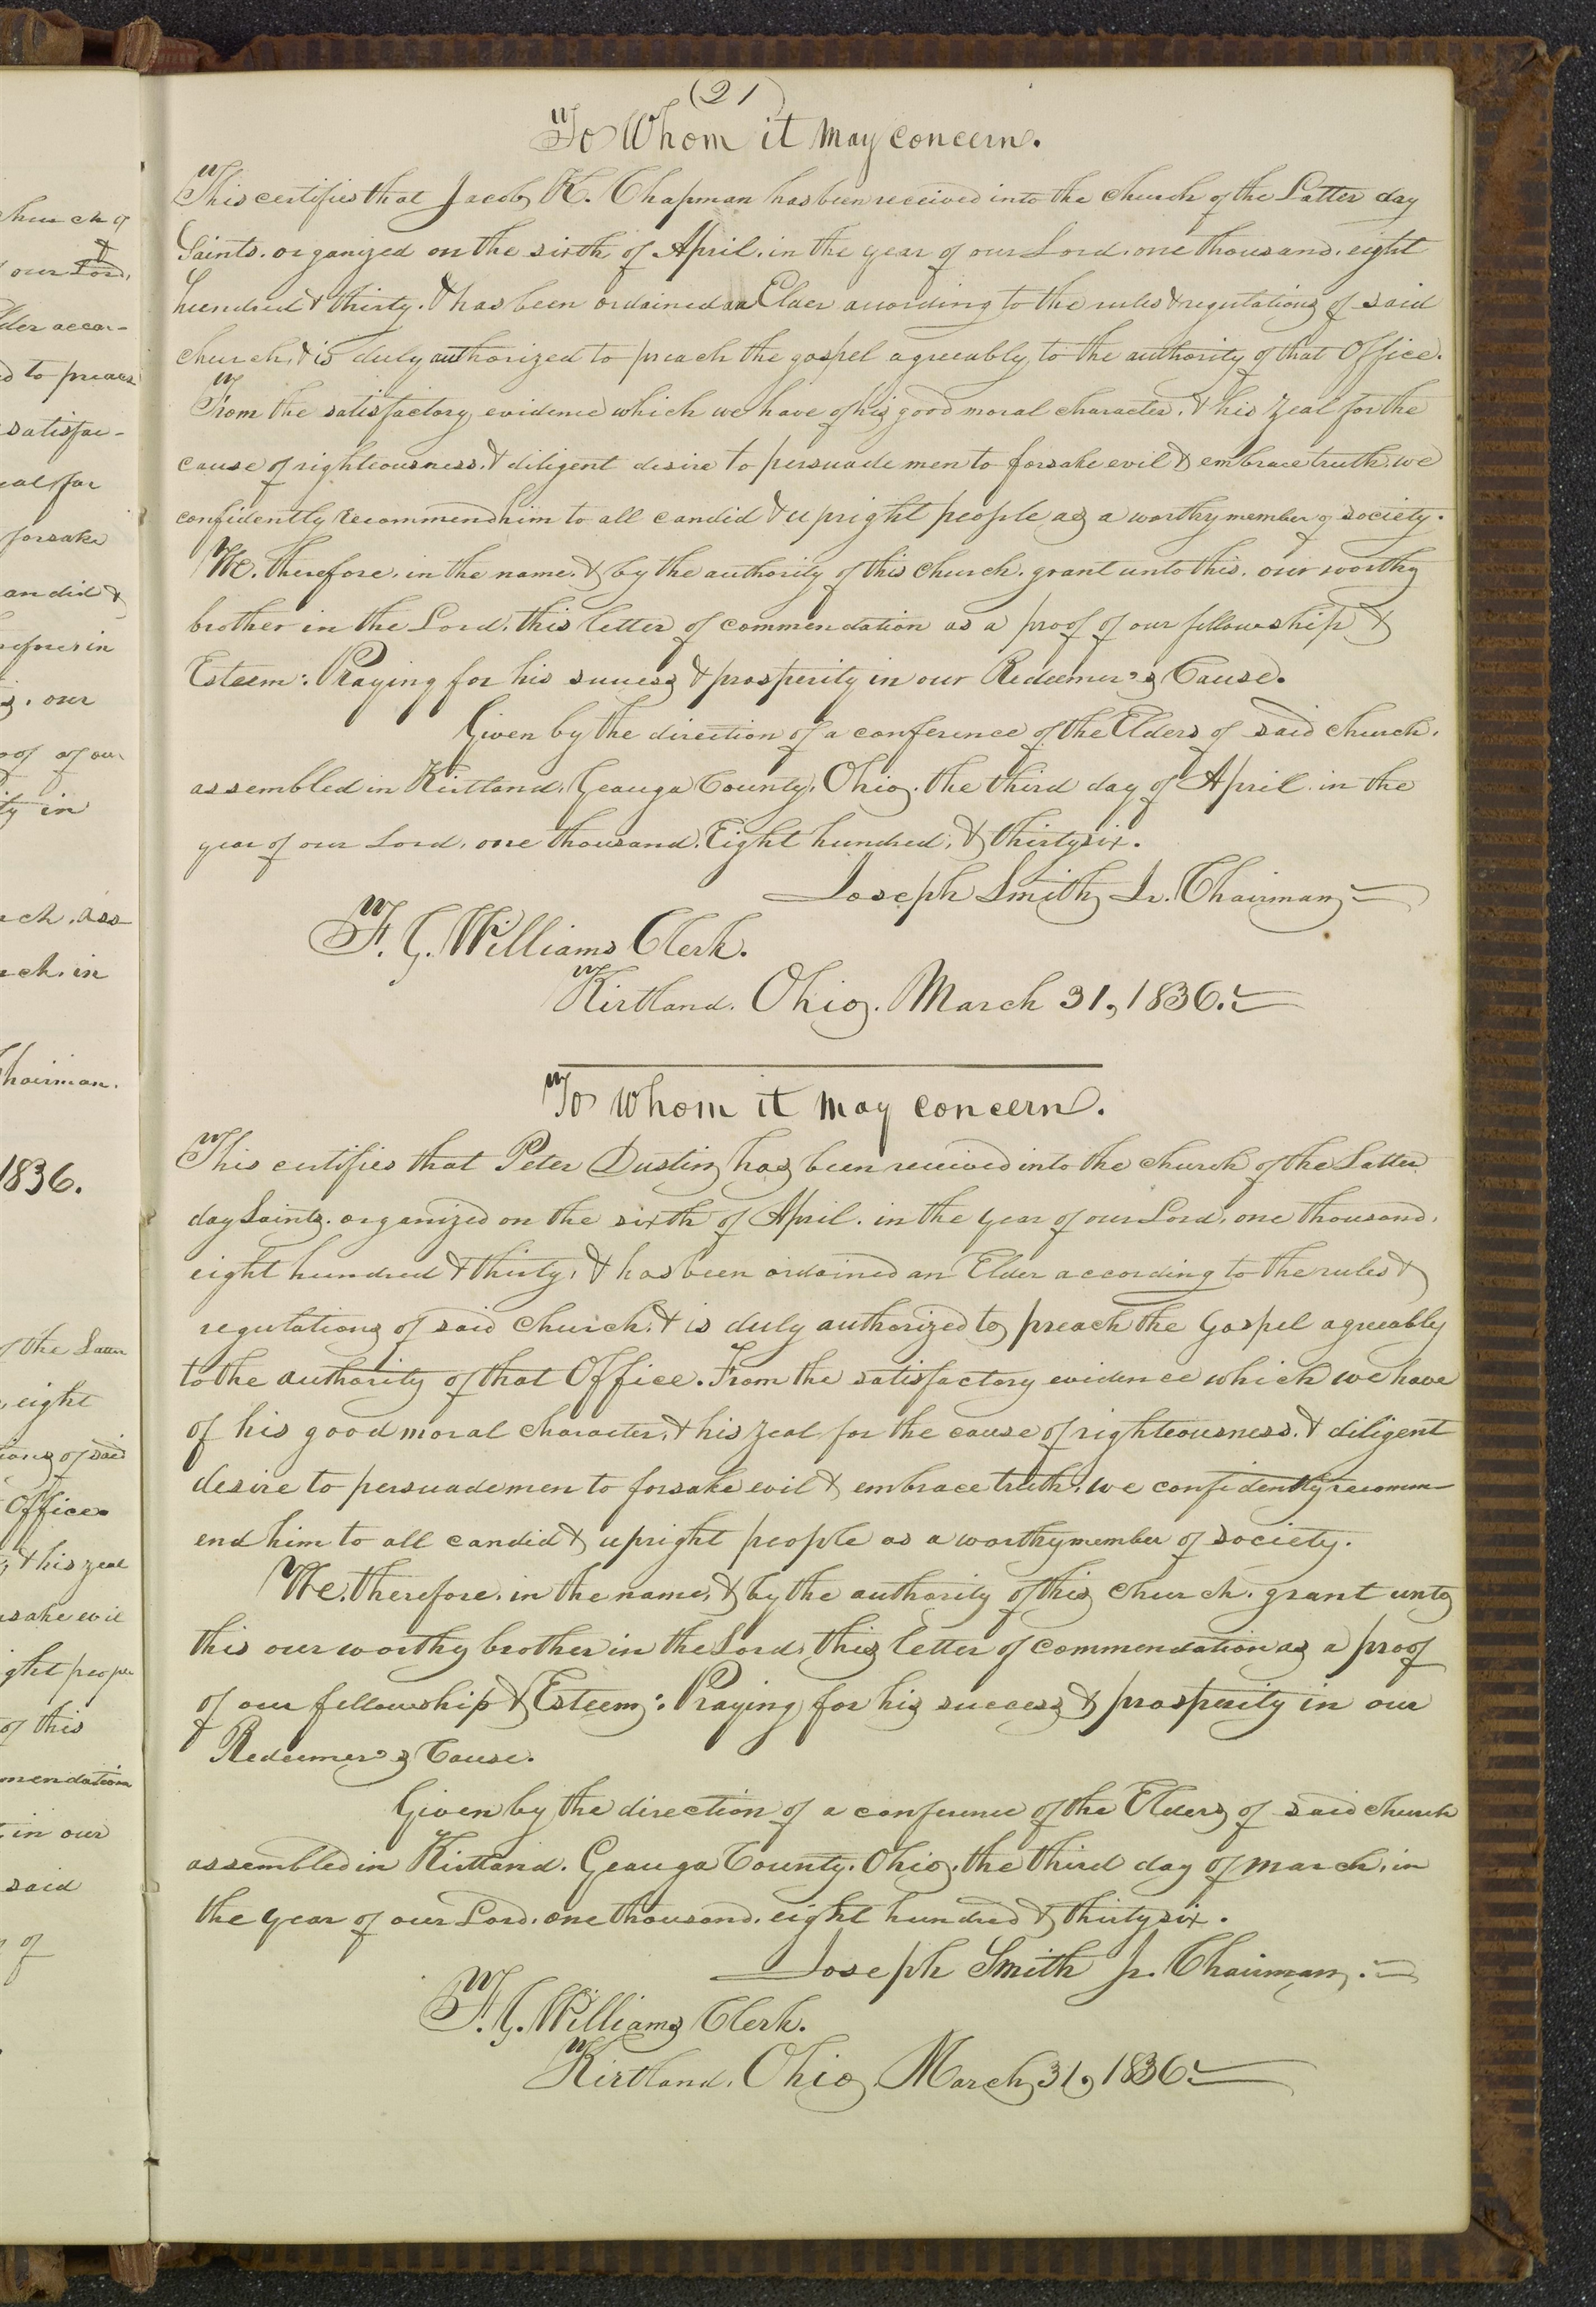 (21)
To Whom it May concern.
This certifies that Jacob K. Chapman has been received into the church of the Latter day
Saints. organized on the sixth of April. in the year of our Lord. one thousand. eight
hundred & thirty. & has been ordained an Elder according to the rules & regulations of said
church, & is duly authorized to preach the gospel agreeably to the authority of that Office.
From the satisfactory evidence which we have of his good moral character, & his zeal for the
cause of righteousness, & diligent desire to persuade men to forsake evil & embrace truth, we
confidently recommend him to all candid & upright people as a worthy member of society.
We, therefore, in the name, & by the authority of this church. grant unto this, our worthy
brother in the Lord, this letter of commendation as a proof of our fellowship &
Esteem: Praying for his success & prosperity in our Redeemer's Cause.
Given by the direction of a conference of the Elders of said church,
assembled in Kirtland, Geauga County, Ohio, the third day of April in the
year of our Lord, one thousand, Eight hundred, & thirty six.
Joseph Smith Jr. Chairman
F. G. Williams Clerk.
Kirtland, Ohio. March 31, 1836.
To Whom it May concern.
This certifies that Peter Dustin has been received into the church of the Latter
day Saints. organized on the sixth of April. in the year of our Lord, one thousand,
eight hundred & thirty, & has been ordained an Elder according to the rules &
regulations of said church, & is duly authorized to preach the Gospel agreeably
to the authority of that Office. From the satisfactory evidence which we have
of his good moral character, & his zeal for the cause of righteousness, & diligent
desire to persuade men to forsake evil & embrace truth, we confidently recomm-
end him to all candid & upright people as a worthy member of society.
We, therefore, in the name, & by the authority of this church, grant unto
this our worthy brother in the Lord, this letter of commendation as a proof
of our fellowship & Esteem: Praying for his success & prosperity in our
Redeemer's Cause.
Given by the direction of a conference of the Elders of said church
assembled in Kirtland. Geauga County, Ohio, the third day of march, in
the year of our Lord, one thousand, eight hundred & thirty six.
Joseph Smith Jr. Chairman.
F. G. Williams Clerk.
Kirtland, Ohio March 31, 1836